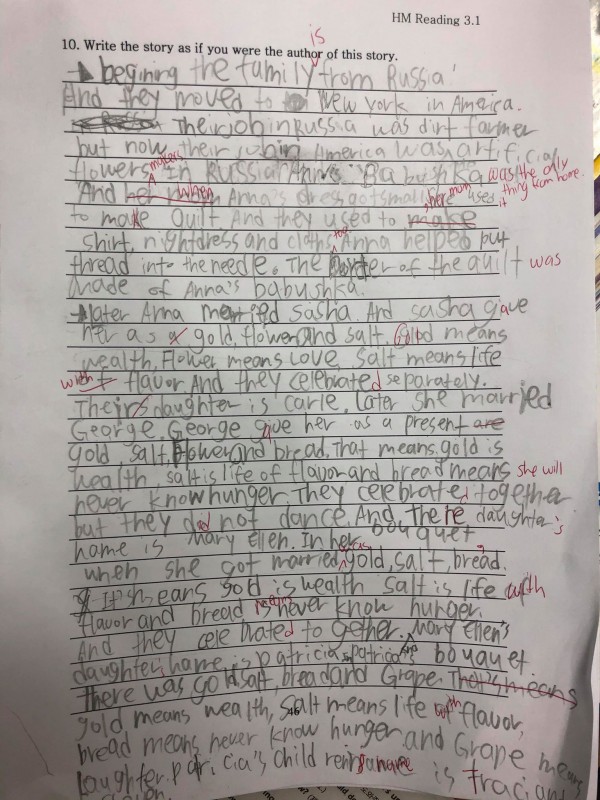 HM Reading 3.1
is
10. Write the story as if you were the author of this story.
begining the family from Russia.
And they moved to New York in America.
Their job in Russia was dirt farmer
but now their job in America was artificial
flowers makers In Russian Anna's Babushka was the only
thing from home.
And her when Anna's dress got small her mom used it
to make Quilt And they used to make
shirt, nightdress and cloths too Anna helped put
thread into the needle. The border of the quilt was
made of Anna's babushka.
later Anna married sasha. And sasha gave
her as a gold, flower and salt. Gold means
wealth, Flower means Love, Salt means life
with flavor And they celebrated separately.
Their daughter is carle. Later she married
George. George give her as a present are
gold, salt, flower and bread. That means. gold is
wealth, salt is life of flavor and bread means she will
never know hunger. They celebrated together
but they did not dance. And There daughter's
name is Mary Ellen. In her bouquet
when she got married was gold, salt, bread.
It means gold is wealth salt is life with
flavor and bread means never know hunger.
And they celebrated together. Mary Ellen's
daughter name is patricia patricia's bouquet.
there was gold, salt, bread and Grape. That's means
46
gold means wealth, salt means life with flavor,
bread means never know hunger and Grape means
laughter. patricia's child name is traci and